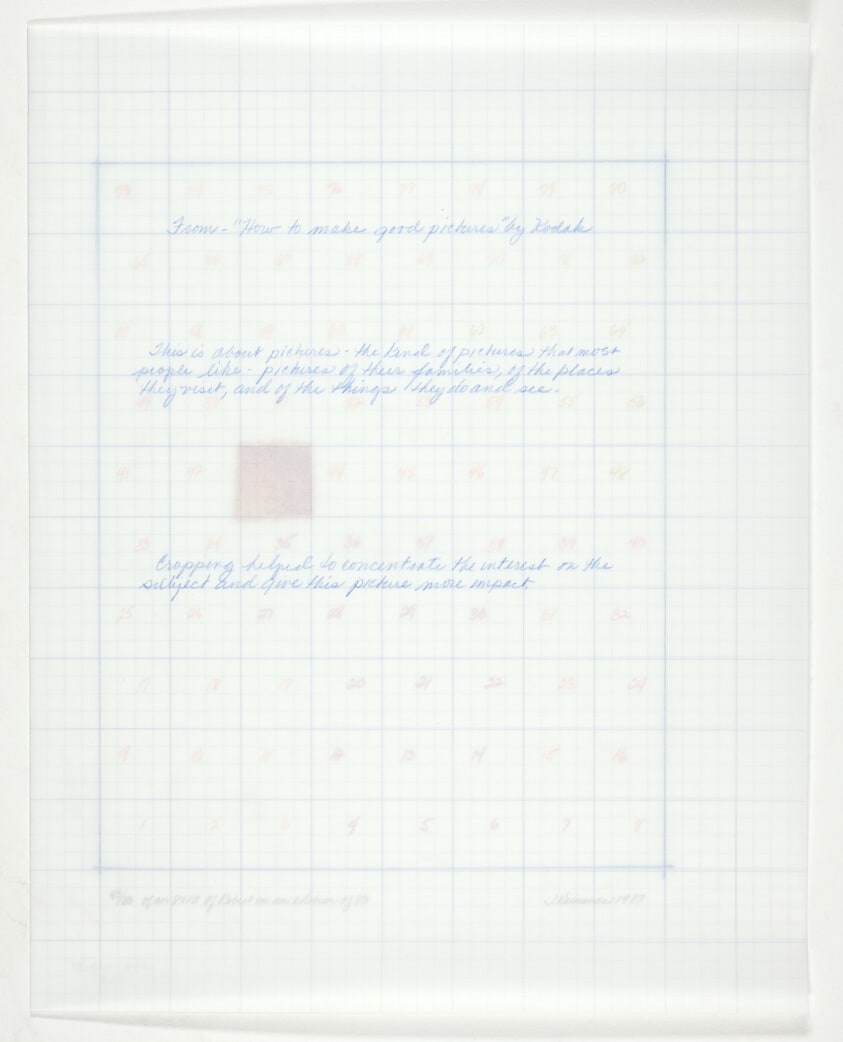 73 74 75 76 77 78 79 80
From - "How to make good pictures" by Kodak
65 66 67 68 69 70 71 72
57 58 59 60 61 62 63 64
This is about pictures - the kind of pictures that most
people like - pictures of their families, of the places
they visit, and of the things they do and see.
49 50 52 53 54 55 56
41 42 44 45 46 47 48
33 34 35 36 37 38 39 40
Cropping helped to concentrate the interest on the
subject and give this picture more impact.
25 26 27 28 29 30 31 32
17 18 19 20 21 22 23 24
9 10 11 12 13 14 15 16
1 2 3 4 5 6 7 8
of an 8x10 of Robert in an edition of 80
1977